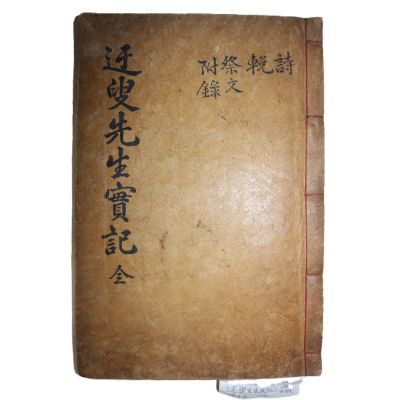 詩
輓
祭文
附錄
迂叟先生實記 全